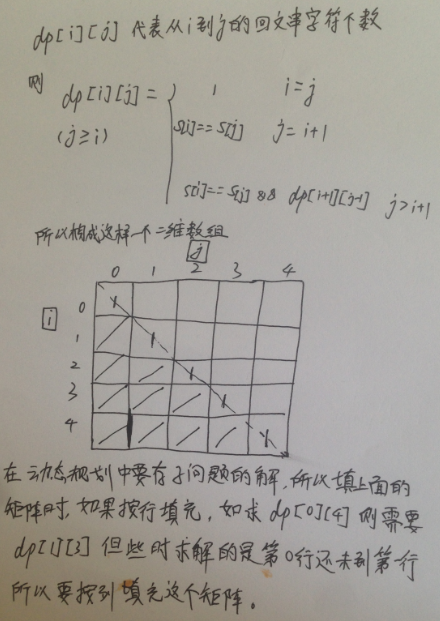 dp[i][j] 代表从i到j的回文串字符个数
则 dp[i][j] = { 1 i=j
(j≥i) s[i]==s[j] j=i+1
s[i]==s[j] && dp[i+1][j-1] j>i+1
所以构成这样一个二维数组
j
0 1 2 3 4
i
0
1
2
3
4
在动态规划中要存子问题的解,所以填上面的
矩阵时,如果按行填充,如求dp[0][4]则需要
dp[1][3] 但些时求解的是第0行还未到第一行
所以要按列填充这个矩阵。